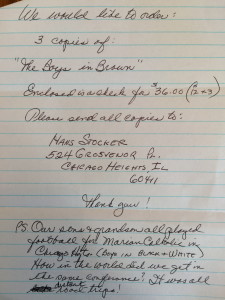 We would like to order:
3 copies of:
"The Boys in Brown"
Enclosed is a check for $36.00 (12 x 3)
Please send all copies to:
Hans Stocker
524 Grosvenor Pl.
Chicago Heights, IL
60411
Thank you!
PS Our sons & grandson all played
football for Marian Catholic in
Chicago Hgts (Boys in
& White)
How in the world did we get in
the same conference? It was all
road trips!